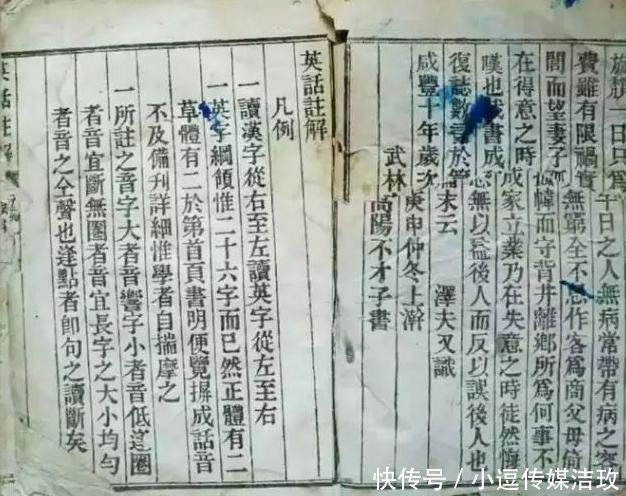 旛類一日只爲午日之人無病常帶有病之容
費雖有限禍實無窮全不思作客爲商父母倚
閭而望妻子倚幃而守背井離鄉所爲何事不
在得意之時成家立業乃在失意之時徒然悔
嘆也哉書成恐無以益後人而反以誤後人也
復誌數言於篇末云　澤夫又識
咸豐十年歲次庚申仲冬上澣
武林高陽不才子書
英話註解
凡例
一讀漢字從右至左讀英字從左至右
一英字綱領惟二十六字而已然正體有二
草體有二於第首頁書明便覽摒成話音
不及備刋詳細惟學者自揣摩之
一所註之音字大者音響字小者音低逢圈
者音宜斷無圈者音宜長字之大小均勻
者音之仝聲也逢點者卽句之讀斷矣
英話註解
快传号／小逗传媒洁玫